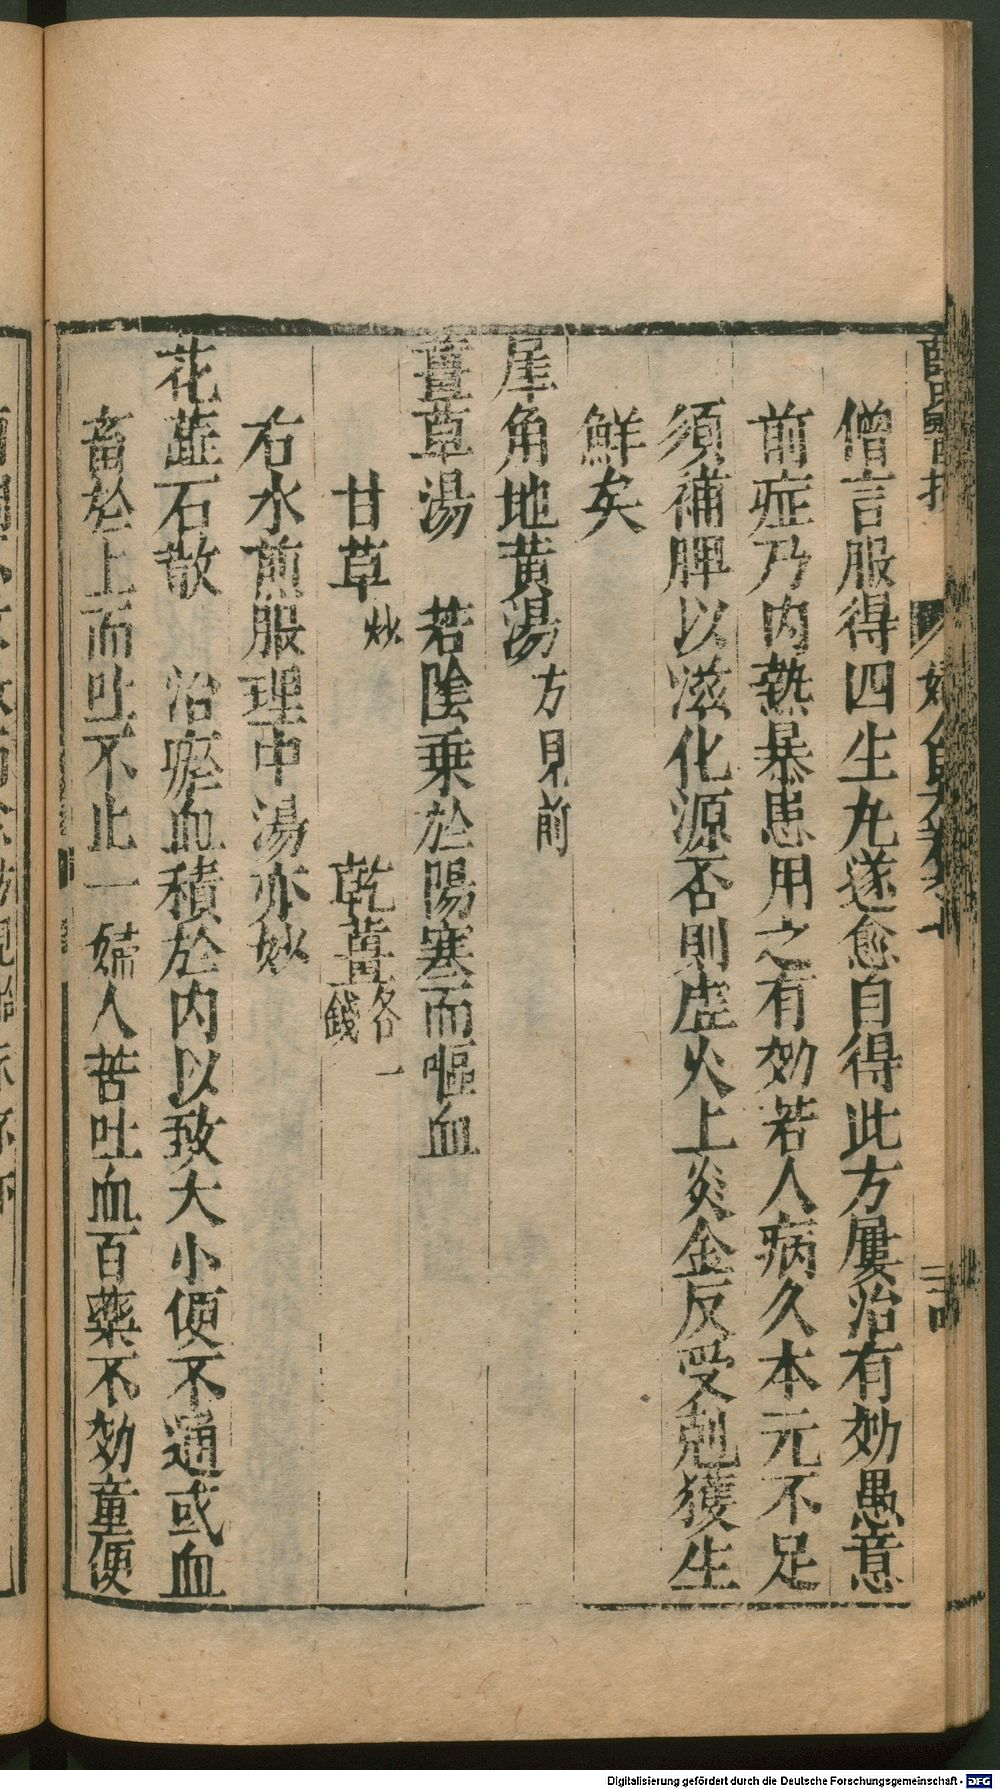 僧言服得四生丸遂愈自得此方屢治有効愚意
前症乃内熱暴患用之有効若人病久本元不足
須補脾以滋化源否則虚火上炎金反受剋獲生
鮮矣
犀角地黄湯方見前
薑草湯　若陰乗於陽寒而嘔血
甘草炒　乾薑各一錢
右水煎服理中湯亦妙
花蕋石散　治瘀血積於内以致大小便不通或血
畜於上而吐不止一婦人苦吐血百藥不効童便
Digitalisierung gefördert durch die Deutsche Forschungsgemeinschaft - DFG